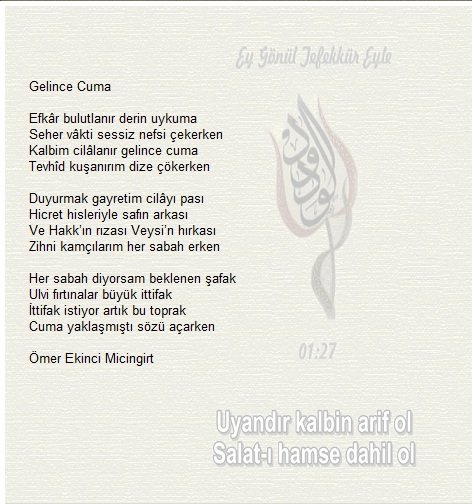 Ey Gönül Tefekkür Eyle
Gelince Cuma
Efkâr bulutlanır derin uykuma
Seher vâkti sessiz nefsi çekerken
Kalbim cilâlanır gelince cuma
Tevhîd kuşanırım dize çökerken
Duyurmak gayretim cilâyı pası
Hicret hisleriyle safın arkası
Ve Hakk'ın rızası Veysi'n hırkası
Zihni kamçılarım her sabah erken
Her sabah diyorsam beklenen şafak
Ulvi fırtınalar büyük ittifak
İttifak istiyor artık bu toprak
Cuma yaklaşmıştı sözü açarken
Ömer Ekinci Micingirt
01:27
Uyandır kalbin arif ol
Salat-ı hamse dahil ol